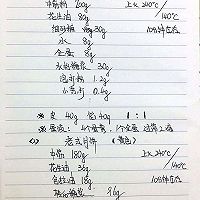 中筋粉 200g 上火 240℃
花生油 80g 140℃
细砂糖 30g 10分钟左右
水 8g
全蛋 8g
30g
泡打粉 1.2g
小苏打 0.4g
※ 皮 40g 馅 40g 1:1
※ 蛋液: 4个蛋黄, 1个全蛋 过筛2遍
老式月饼 (黄色)
中筋 180g 上火 240℃
花生油 35g 140℃
色拉油 15g 10分钟左右
96g